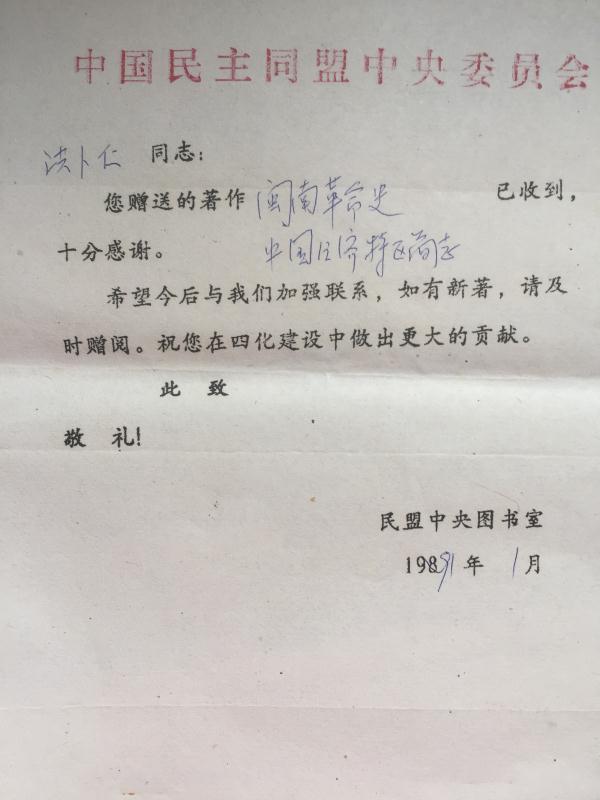 中国民主同盟中央委员会
洪卜仁 同志：
您赠送的著作 闽南革命史 已收到，
十分感谢。 中国经济特区简志
希望今后与我们加强联系，如有新著，请及
时赠阅。祝您在四化建设中做出更大的贡献。
此 致
敬 礼！
民盟中央图书室
1991年 1月